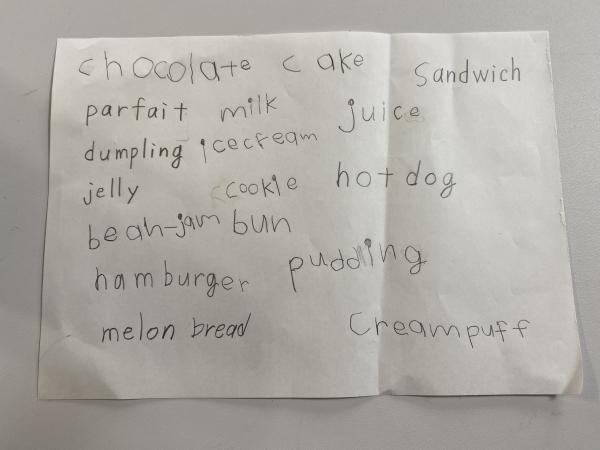 chocolate cake sandwich
parfait milk juice
dumpling icecream
jelly cookie hot dog
bean-jam bun
hamburger pudding
melon bread Creampuff